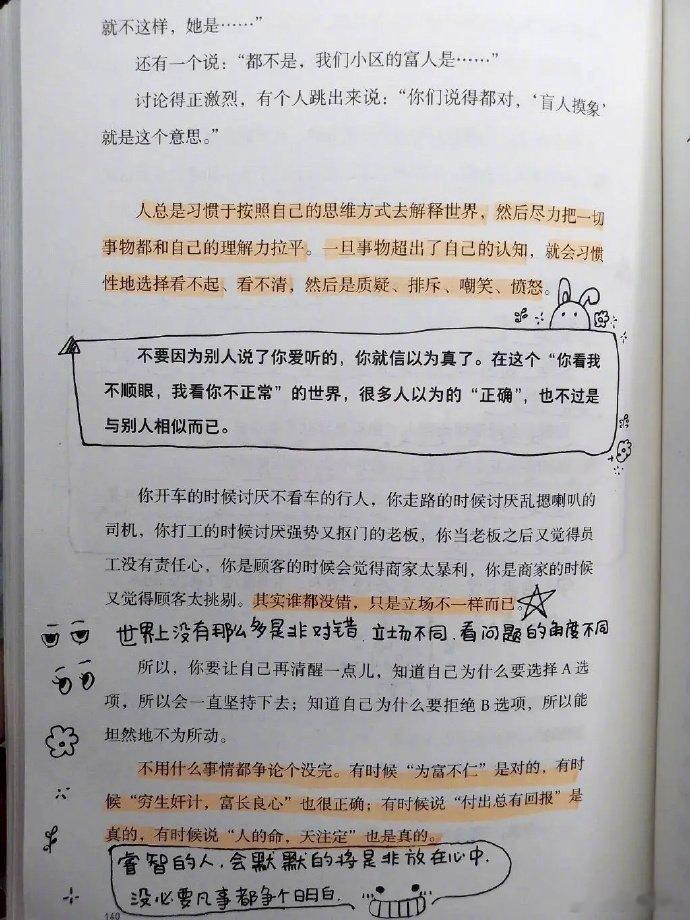 就不这样，她是……”
还有一个说：“都不是，我们小区的富人是……”
讨论得正激烈，有个人跳出来说：“你们说得都对，‘盲人摸象’
就是这个意思。”
人总是习惯于按照自己的思维方式去解释世界，然后尽力把一切
事物都和自己的理解力拉平。一旦事物超出了自己的认知，就会习惯
性地选择看不起、看不清，然后是质疑、排斥、嘲笑、愤怒。
不要因为别人说了你爱听的，你就信以为真了。在这个“你看我
不顺眼，我看你不正常”的世界，很多人以为的“正确”，也不过是
与别人相似而已。
你开车的时候讨厌不看车的行人，你走路的时候讨厌乱摁喇叭的
司机，你打工的时候讨厌强势又抠门的老板，你当老板之后又觉得员
工没有责任心，你是顾客的时候会觉得商家太暴利，你是商家的时候
又觉得顾客太挑剔。其实谁都没错，只是立场不一样而已。
世界上没有那么多是非对错，立场不同，看问题的角度不同
所以，你要让自己再清醒一点儿，知道自己为什么要选择 A 选
项，所以会一直坚持下去；知道自己为什么要拒绝 B 选项，所以能
坦然地不为所动。
不用什么事情都争论个没完。有时候“为富不仁”是对的，有时
候“穷生奸计，富长良心”也很正确；有时候说“付出总有回报”是
真的，有时候说“人的命，天注定”也是真的。
睿智的人，会默默的将是非放在心中，
没必要凡事都争个明白。
140